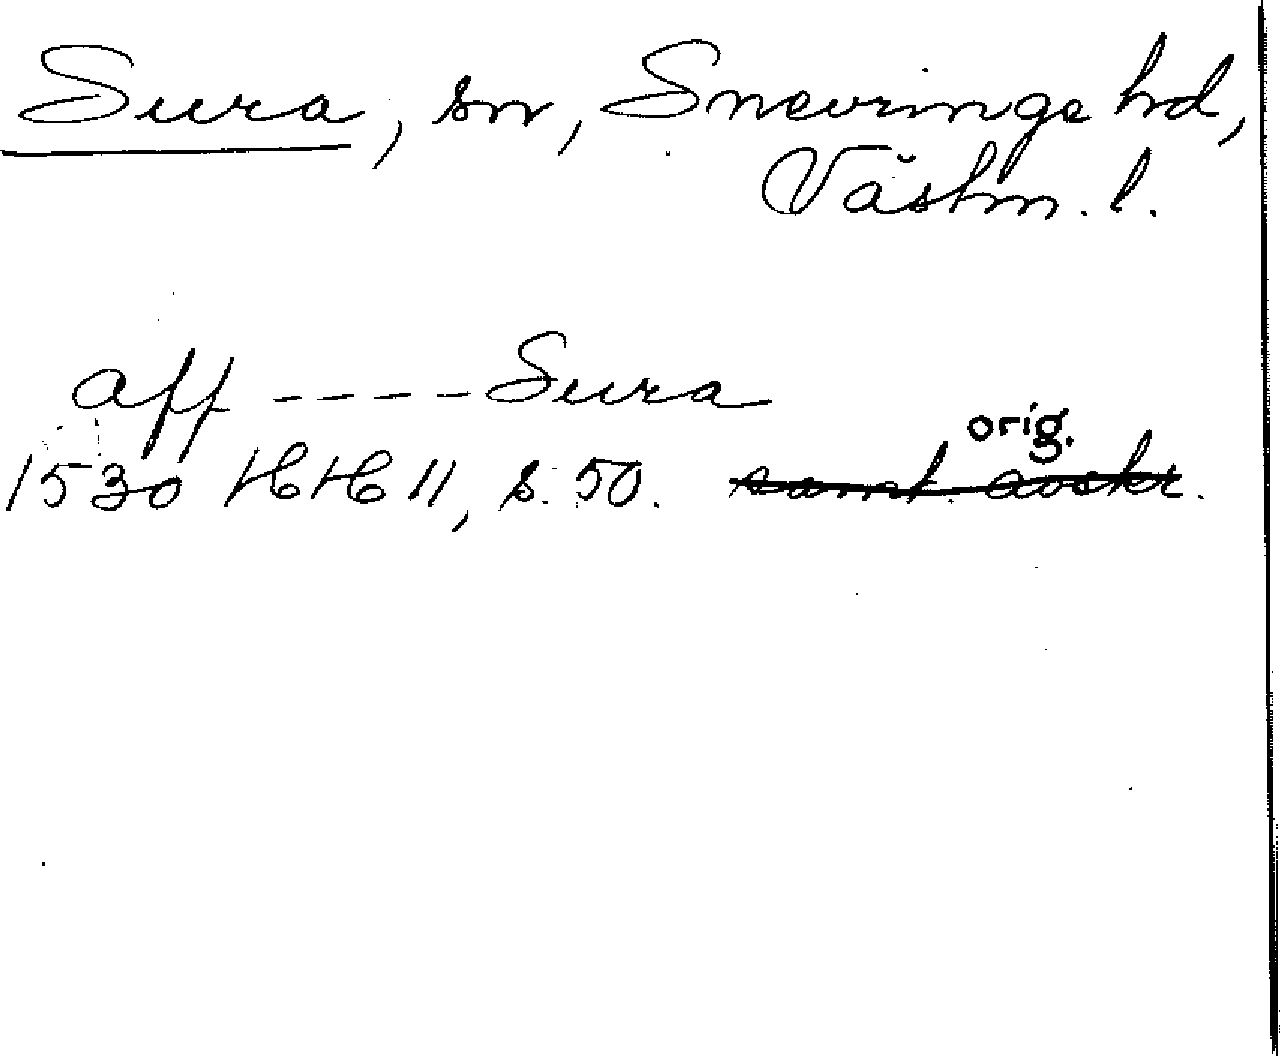 Sura, sn, Snevringe hd,
Västm. l.
aff ---- Sura
orig.
1530 HH 11, s. 50. samt. avskr.